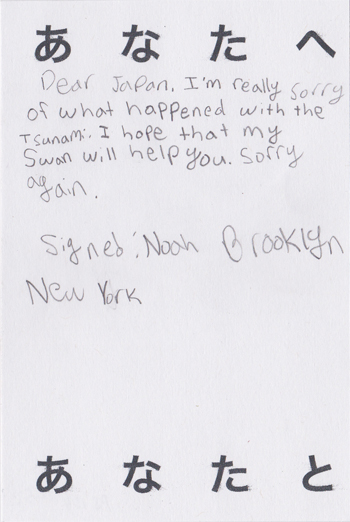 あなたへ
Dear Japan, I'm really sorry
of what happened with the
Tsunami. I hope that my
Swan will help you. Sorry
again.
Signed: Noah Brooklyn
New York
あなたと